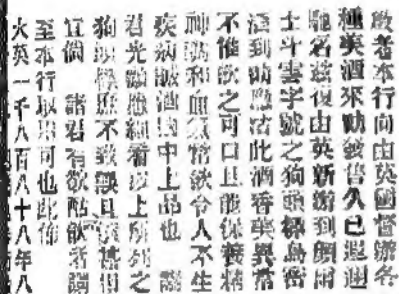 啟者本行向由英國督辦各
種美酒來勸發售久已遐邇
馳名茲復由英新辦到顏爾
士斗雲字號之狗頭標烏密
酒到勸應沽此酒香美異常
不惟飲之可口且能保養精
神調和血氣常飲令人不生
疾病誠酒中上品也 諸
君光顧應細看以上所列之
狗頭標庶不致悞且價格相
宜倘 諸君有欲酤飲者請
至本行取來可也此佈
大英一千八百八十八年八